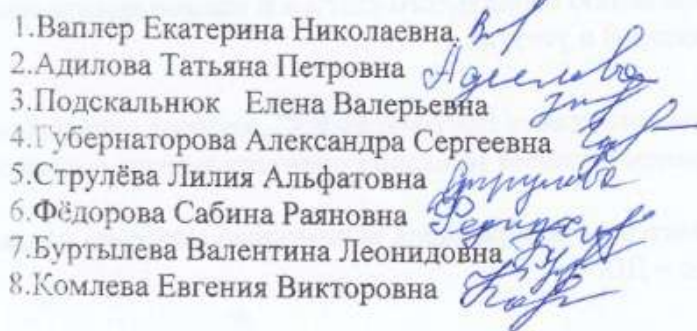 1.Ваплер Екатерина Николаевна.
2.Адилова Татьяна Петровна Адилова
3.Подскальнюк Елена Валерьевна
4.Губернаторова Александра Сергеевна
5.Струлёва Лилия Альфатовна Струлева
6.Фёдорова Сабина Раяновна
7.Буртылева Валентина Леонидовна
8.Комлева Евгения Викторовна